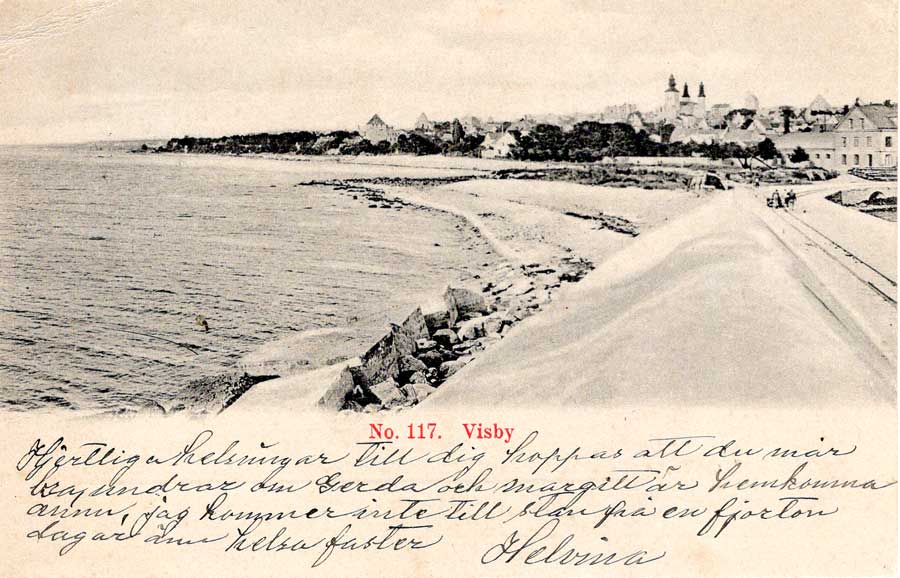 No. 117. Visby
Hjertliga helsningar till dig hoppas att du mår
bra undrar om Gerda och margitt är hemkomna
ännu, jag kommer inte till stan på en fjorton
dagar änn helsa faster Helvina